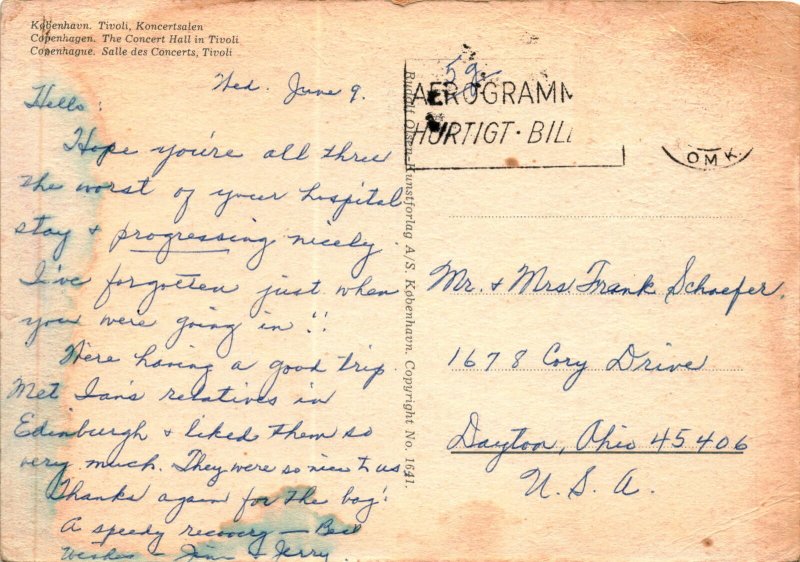 København. Tivoli, Koncertsalen
Copenhagen. The Concert Hall in Tivoli
Copenhague. Salle des Concerts, Tivoli
Wed. June 9.
Hello:
Hope you're all three
the worst of your hospital
stay & progressing nicely.
I've forgotten just when
you were going in!!
We're having a good trip.
Met Ian's relatives in
Edinburgh & liked them so
very much. They were so nice to us
Thanks again for the bag!
A speedy recovery — Best
Wishes — Jim & Jerry
Rudolf Olsen-Kunstforlag A/S. København. Copyright No. 1641.
59
AEROGRAMM
HURTIGT · BILL
OMK.
Mr. & Mrs Frank Schaefer.
1678 Cory Drive
Dayton, Ohio 45406
U.S.A.